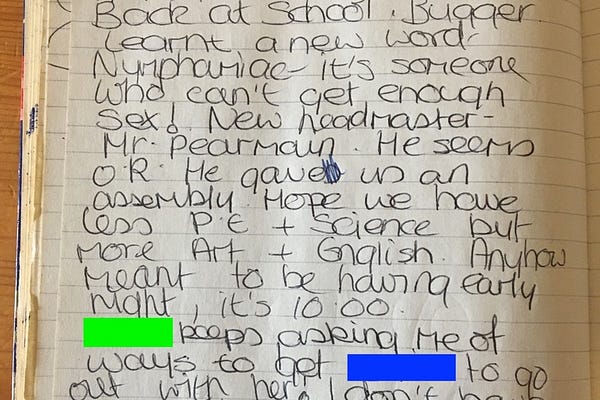 Back at School. Bugger.
Learnt a new word-
Nymphamiac- it's someone
who can't get enough
Sex! New headmaster-
Mr. Pearmain. He seems
O.K. He gave us an
assembly. Hope we have
less P.E + Science but
more Art + English. Anyhow
meant to be having early
night, it's 10:00.
keeps asking me of
ways to get to go
out with her. I don't